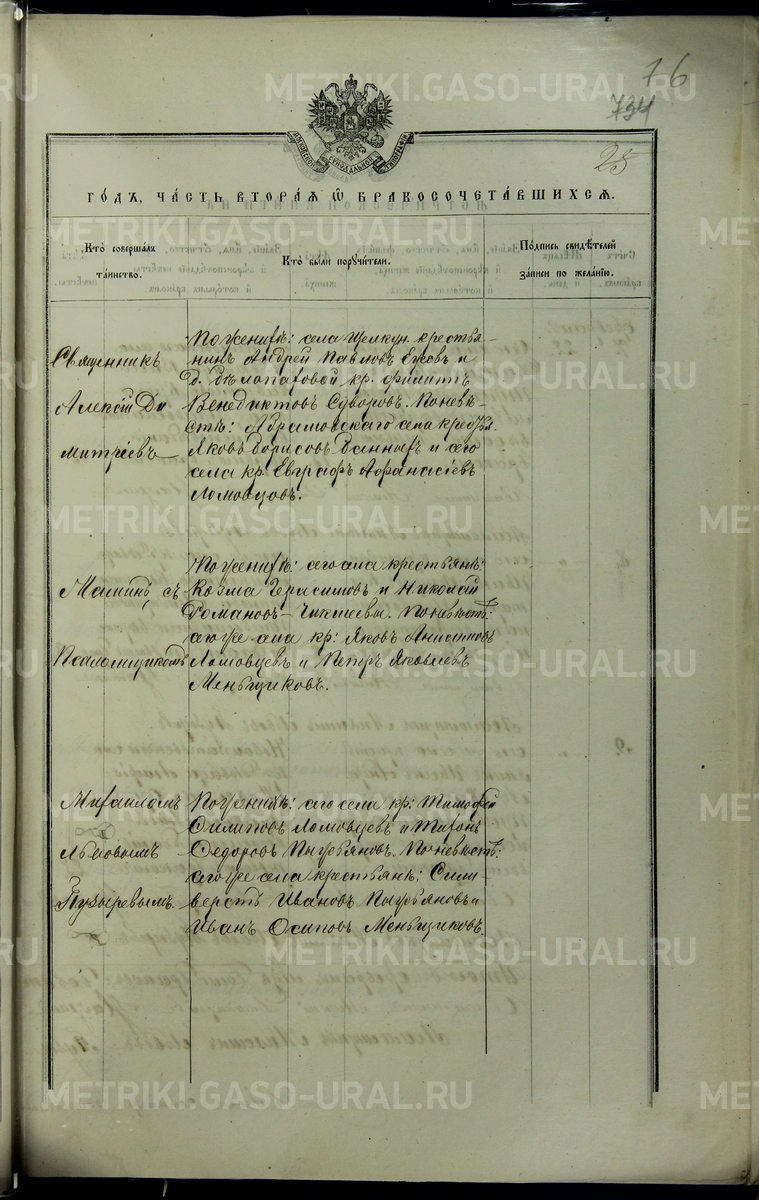 16
734
25
МОСКОВСКОЙ СѴНОДАЛЬНОЙ ТИПОГРАФІИ
ГО́ДЪ, ЧА́СТЬ ВТОРА́Я Ѿ БРАКОСОЧЕТА́ВШИХСЯ.
Кто̀ соверша́лъ
та́инство.
Кто̀ бы́ли поручи́тели.
По́дпись свидѣ́телей
за́писи по жела́нію.
Священникъ
Алексій Ди
митріевъ
По женихѣ: села Щелкун. крестья-
нинъ Андрей Павловъ и
д. кр. Филиппъ
Венедиктовъ Суворовъ. По невѣ-
стѣ: Абрамовскаго села крестья.
Яковъ Борисовъ и сего
села кр. Евграфъ Афанасіевъ
Ломовцовъ.
съ
Псаломщикомъ
По женихѣ: сего села крестьяне:
Козма Герасимовъ и Николай
Романовъ Чикшевы. По невѣстѣ:
сего же села кр: Яковъ
Ломовцевъ и Петръ Яковлевъ
Меньщиковъ.
Михаиломъ
Львовымъ
Пузыревымъ
По женихѣ: сего села кр: Тимофей
Филиповъ Ломовцевъ и Тихонъ
Федоровъ Пагубяновъ. По невѣстѣ:
сего же села крестьяне: Сили-
верстъ Ивановъ и
Иванъ Осиповъ Меньщиковъ.
METRIKI.GASO-URAL.RU